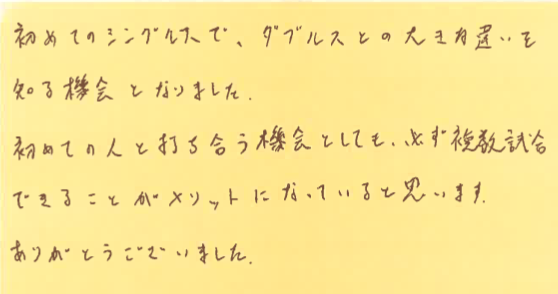 初めてのシングルスで、ダブルスとの大きな違いを
知る機会となりました.
初めての人と打ち合う機会としても、必ず複数試合
できることがメリットになっていると思います.
ありがとうございました.